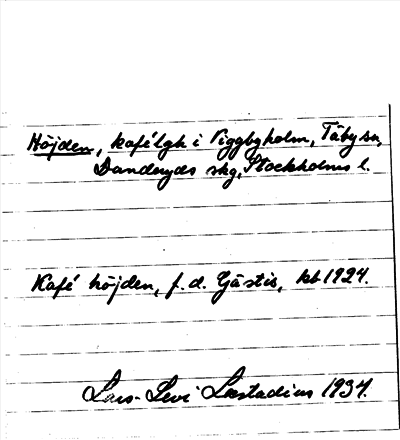 Höjden, kafélgh i Viggbyholm, Täby sn,
Danderyds skg, Stockholms l.
Kafé höjden, f.d. Gästis, kb 1924.
Lars-Levi Læstadius 1934.